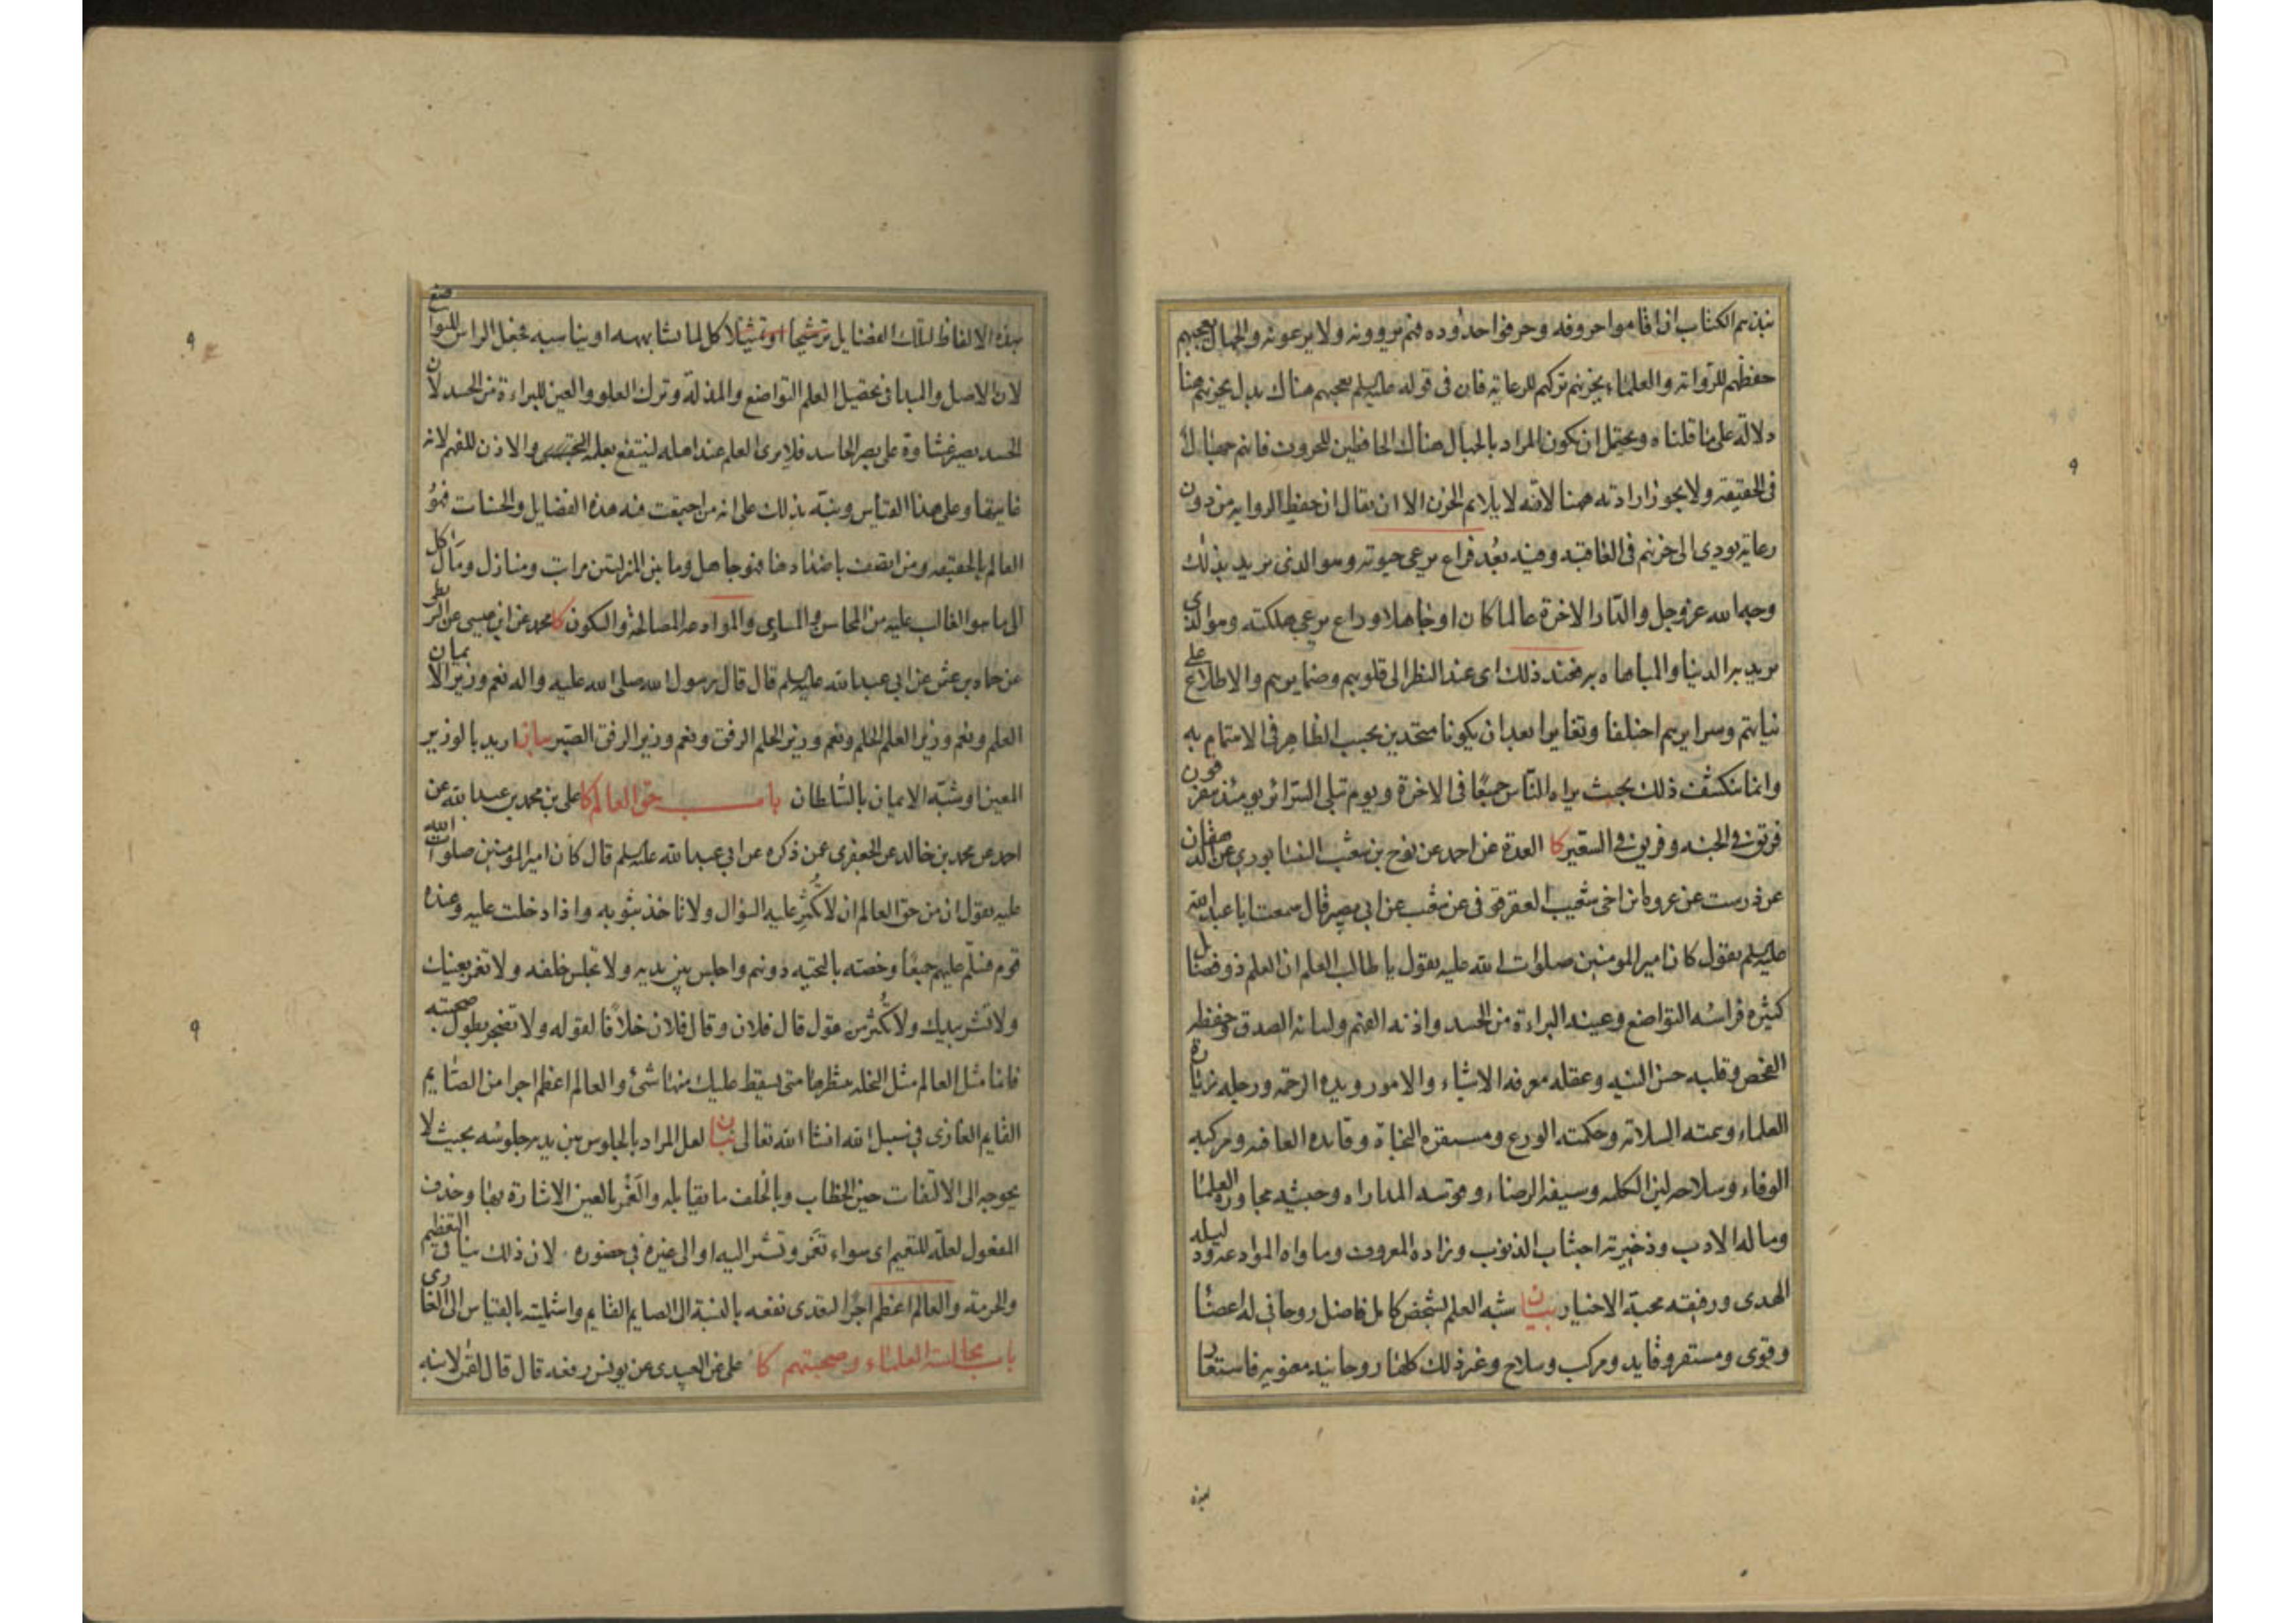 بنبذهم الكتاب ان اقاموا حروفه وحرفوا حدوده فهم يروونه ولا يرعونه والجهال يعجبهم
حفظهم للرواية والعلماء يحزنهم تركهم للرعاية فان فى قوله عليه السلم يعجبهم هناك بدل يحزنهم هنا
دلالة على ما قلناه ويحتمل ان يكون المراد بالجهال هناك الحافظين للحروف فانهم جهال
فى الحقيقة ولا يجوز ارادته هيهنا لانه لا يلايم الحزن الا ان يقال ان حفظ الرواية من دون
رعاية يودى الى حزنهم فى العاقبة وفيه بعد فراع يرعى حيوته وهو الذى يريد بذلك
وجه الله عز وجل والدار الاخرة عالما كان او جاهلا وراع يرعى هلكته وهو الذى
يريد به الدنيا والمباهاه به فعند ذلك اى عند النظر الى قلوبهم وضمايرهم والاطلاع على
نياتهم وسرايرهم اختلفا وتغايرا بعد ان يكونا متحدين بحسب الظاهر فى الاهتمام به
وانما ينكشف ذلك بحيث يراه الناس جميعا فى الاخرة ويوم تبلى السرائر يومئذ يتفرقون
فريق فى الجنه وفريق فى السعير كا العدة عن احمد عن نوح بن شعيب النيشابورى عن الدهقان
عن درست عن عروة ابن اخى شعيب العقرقوفى عن شعيب عن ابى بصير قال سمعت ابا عبد الله
عليه السلم يقول كان امير المومنين صلوات الله عليه يقول يا طالب العلم ان العلم ذو فضايل
كثيرة فراسه التواضع وعينه البراءة من الحسد واذنه الفهم ولسانه الصدق وحفظه
الفحص وقلبه حسن النيه وعقله معرفه الاشياء والامور ويده الرحمة ورجله زيارة
العلماء وهمته السلامة وحكمته الورع ومستقره النجاة وقايده العافيه ومركبه
الوفاء وسلاحه لين الكلمه وسيفه الرضاء وقوسه المداراه وجيشه محاورة العلماء
وماله الادب وذخيرته اجتناب الذنوب وزاده المعروف وماواه الموادعه ودليله
الهدى ورفيقه محبة الاخيار بيان شبه العلم بشخص كامل فاضل روحانى له اعضا
وقوى ومستقر وقايد ومركب وسلاح وغير ذلك كلها روحانيه معنويه فاستعار
هذه الالفاظ لتلك الفضايل ترشيحا او تمثيلا كل لما يشابهه او يناسبه فجعل الراس للتواضع
لان الاصل والمبدا فى تحصيل العلم التواضع والمذلة وترك العلو والعين للبراءة من الحسد لان
الحسد يصير غشاوة على بصر الحاسد فلا يرى العلم عند اهله لينتفع بعلمه والاذن للفهم لانه
غايتها وعلى هذا القياس ونبه بذلك على انه من اجتمعت فيه هذه الفضايل والحسنات فهو
العالم بالحقيقه ومن اتصف باضدادها فهو جاهل وما بين المنزلتين مراتب ومنازل ومآل كل
الى ما هو الغالب عليه من المحاسن والمساوى والموادعه المصالحة والسكون كا محمد عن ابن عيسى عن البزنطى
عن حماد بن عثمن عن ابى عبد الله عليه السلم قال قال رسول الله صلى الله عليه واله نعم وزير الايمان
العلم ونعم وزير العلم الحلم ونعم وزير الحلم الرفق ونعم وزير الرفق الصبر بيان اريد بالوزير
المعين او شبه الايمان بالسلطان باب حق العالم كا على بن محمد بن عبد الله عن
احمد عن محمد بن خالد عن الجعفرى عمن ذكره عن ابى عبد الله عليه السلم قال كان امير المومنين صلوات الله
عليه يقول ان من حق العالم ان لا تكثر عليه السؤال ولا تاخذ بثوبه واذا دخلت عليه وعنده
قوم فسلم عليهم جميعا وخصه بالتحيه دونهم واجلس بين يديه ولا تجلس خلفه ولا تغمز بعينك
ولا تشر بيدك ولا تكثر من قول قال فلان وقال فلان خلافا لقوله ولا تضجر بطول صحبته
فانما مثل العالم مثل النخله تنتظرها متى يسقط عليك منها شئ والعالم اعظم اجرا من الصايم
القايم الغازى فى سبيل الله انشا الله تعالى بيان لعل المراد بالجلوس بين يديه جلوسه بحيث لا
يحوجه الى الالتفات حين الخطاب وبالخلف ما يقابله والغمز بالعين الاشارة بها وحذف
المفعول لعله للتعميم اى سواء تغمز وتشر اليه او الى غيره فى حضوره لان ذلك ينافى التعظيم
والحرمة والعالم اعظم اجرا لتعدى نفعه بالنسبة الى الصايم القايم واشمليته بالقياس الى الغازى
باب مجالسة العلماء وصحبتهم كا على عن العبيدى عن يونس رفعه قال قال لقمن لابنه